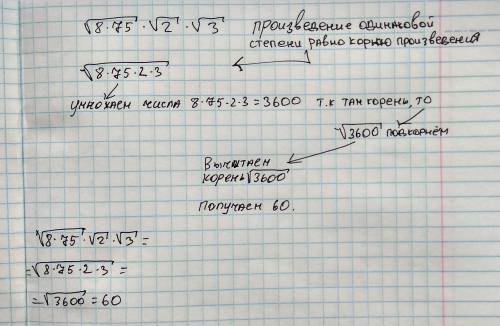 √8·75 · √2 · √3 произведение одинаковой
степени равно корню произведения
√8·75·2·3
умножаем числа 8·75·2·3=3600 т.к там корень, то
√3600 под корнем
Вычитаем
корень √3600
Получаем 60.
√8·75 · √2 · √3 =
= √8·75·2·3 =
= √3600 = 60